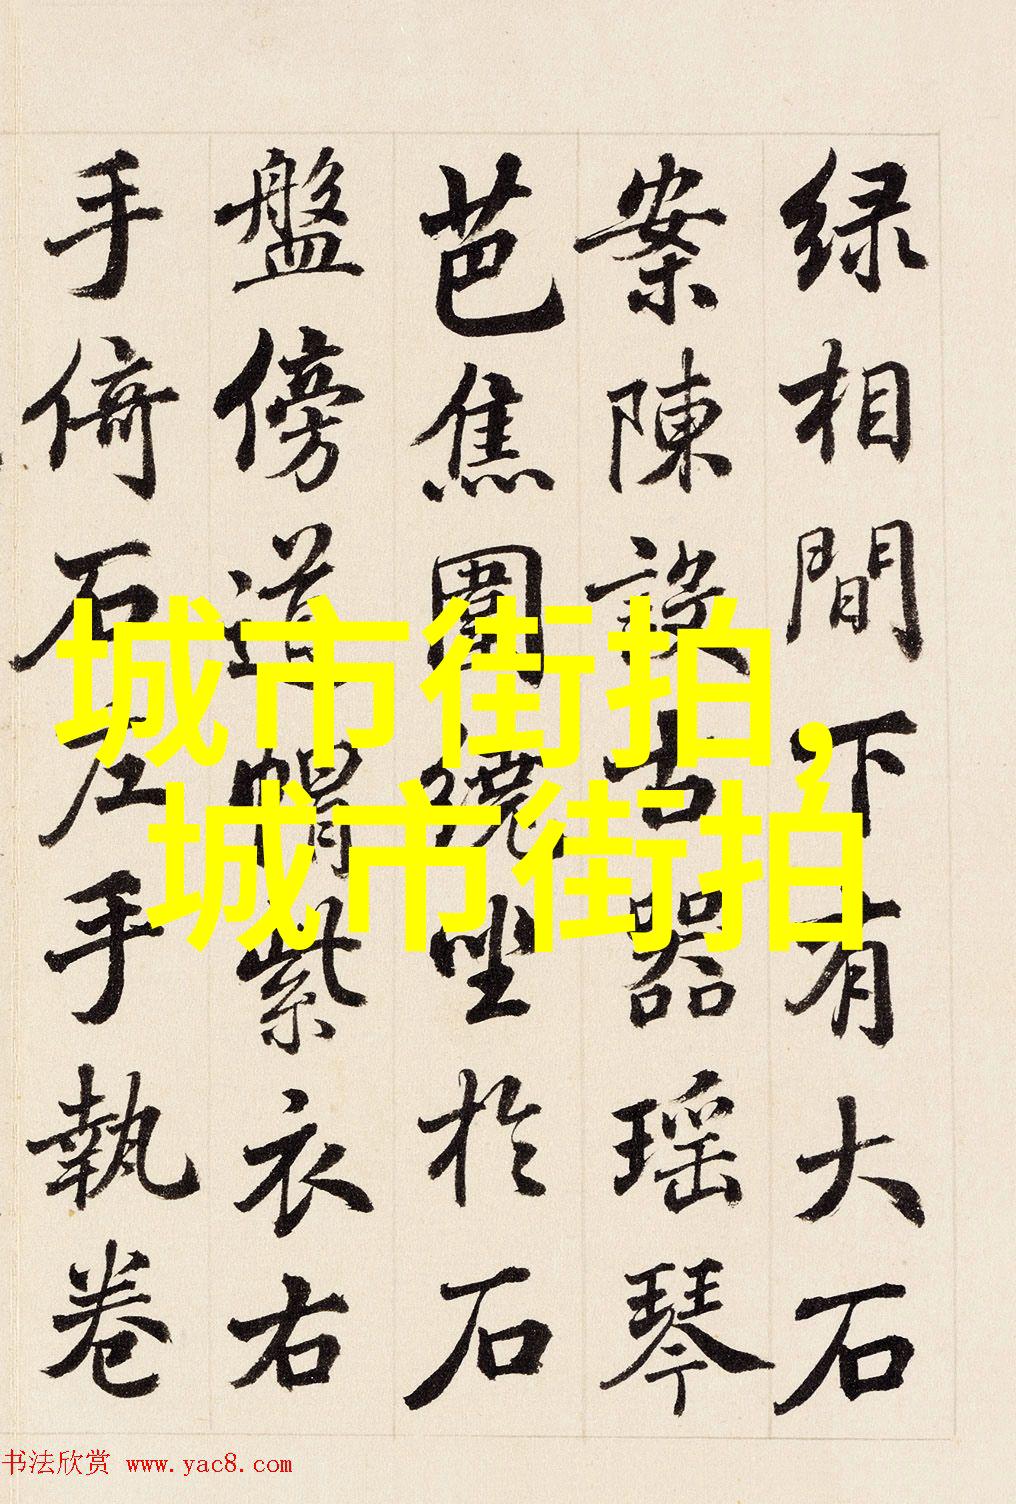 绿相間下有大石
案陳設古器瑶琴
芭焦圍繞坐於石
盤傍道帽紫衣右
手倚石左手執卷
城市街拍,
城市街拍
书法欣赏 www.yac8.com